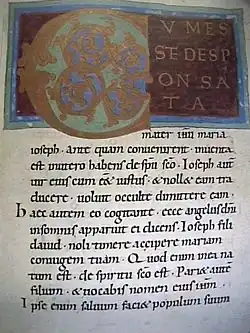 CUM ES
SE DESP
ON SA
TA
mater ihu maria
ioseph · ante quam convenirent · inventa
est in utero habens de spu sco · Ioseph aut
vir eius cum eet iustus · & nollet eam tra
ducere · voluit occulte dimittere eam ·
haec autem eo cogitante · ecce angelus dni
in somnis apparuit ei dicens · Ioseph fili
david · noli timere accipere mariam
coniugem tuam · Quod enim in ea na
tum est · de spiritu sco est · Pariet aute
filium · & vocabis nomen eius ihm ·
Ipse enim salvum faciet populum suum